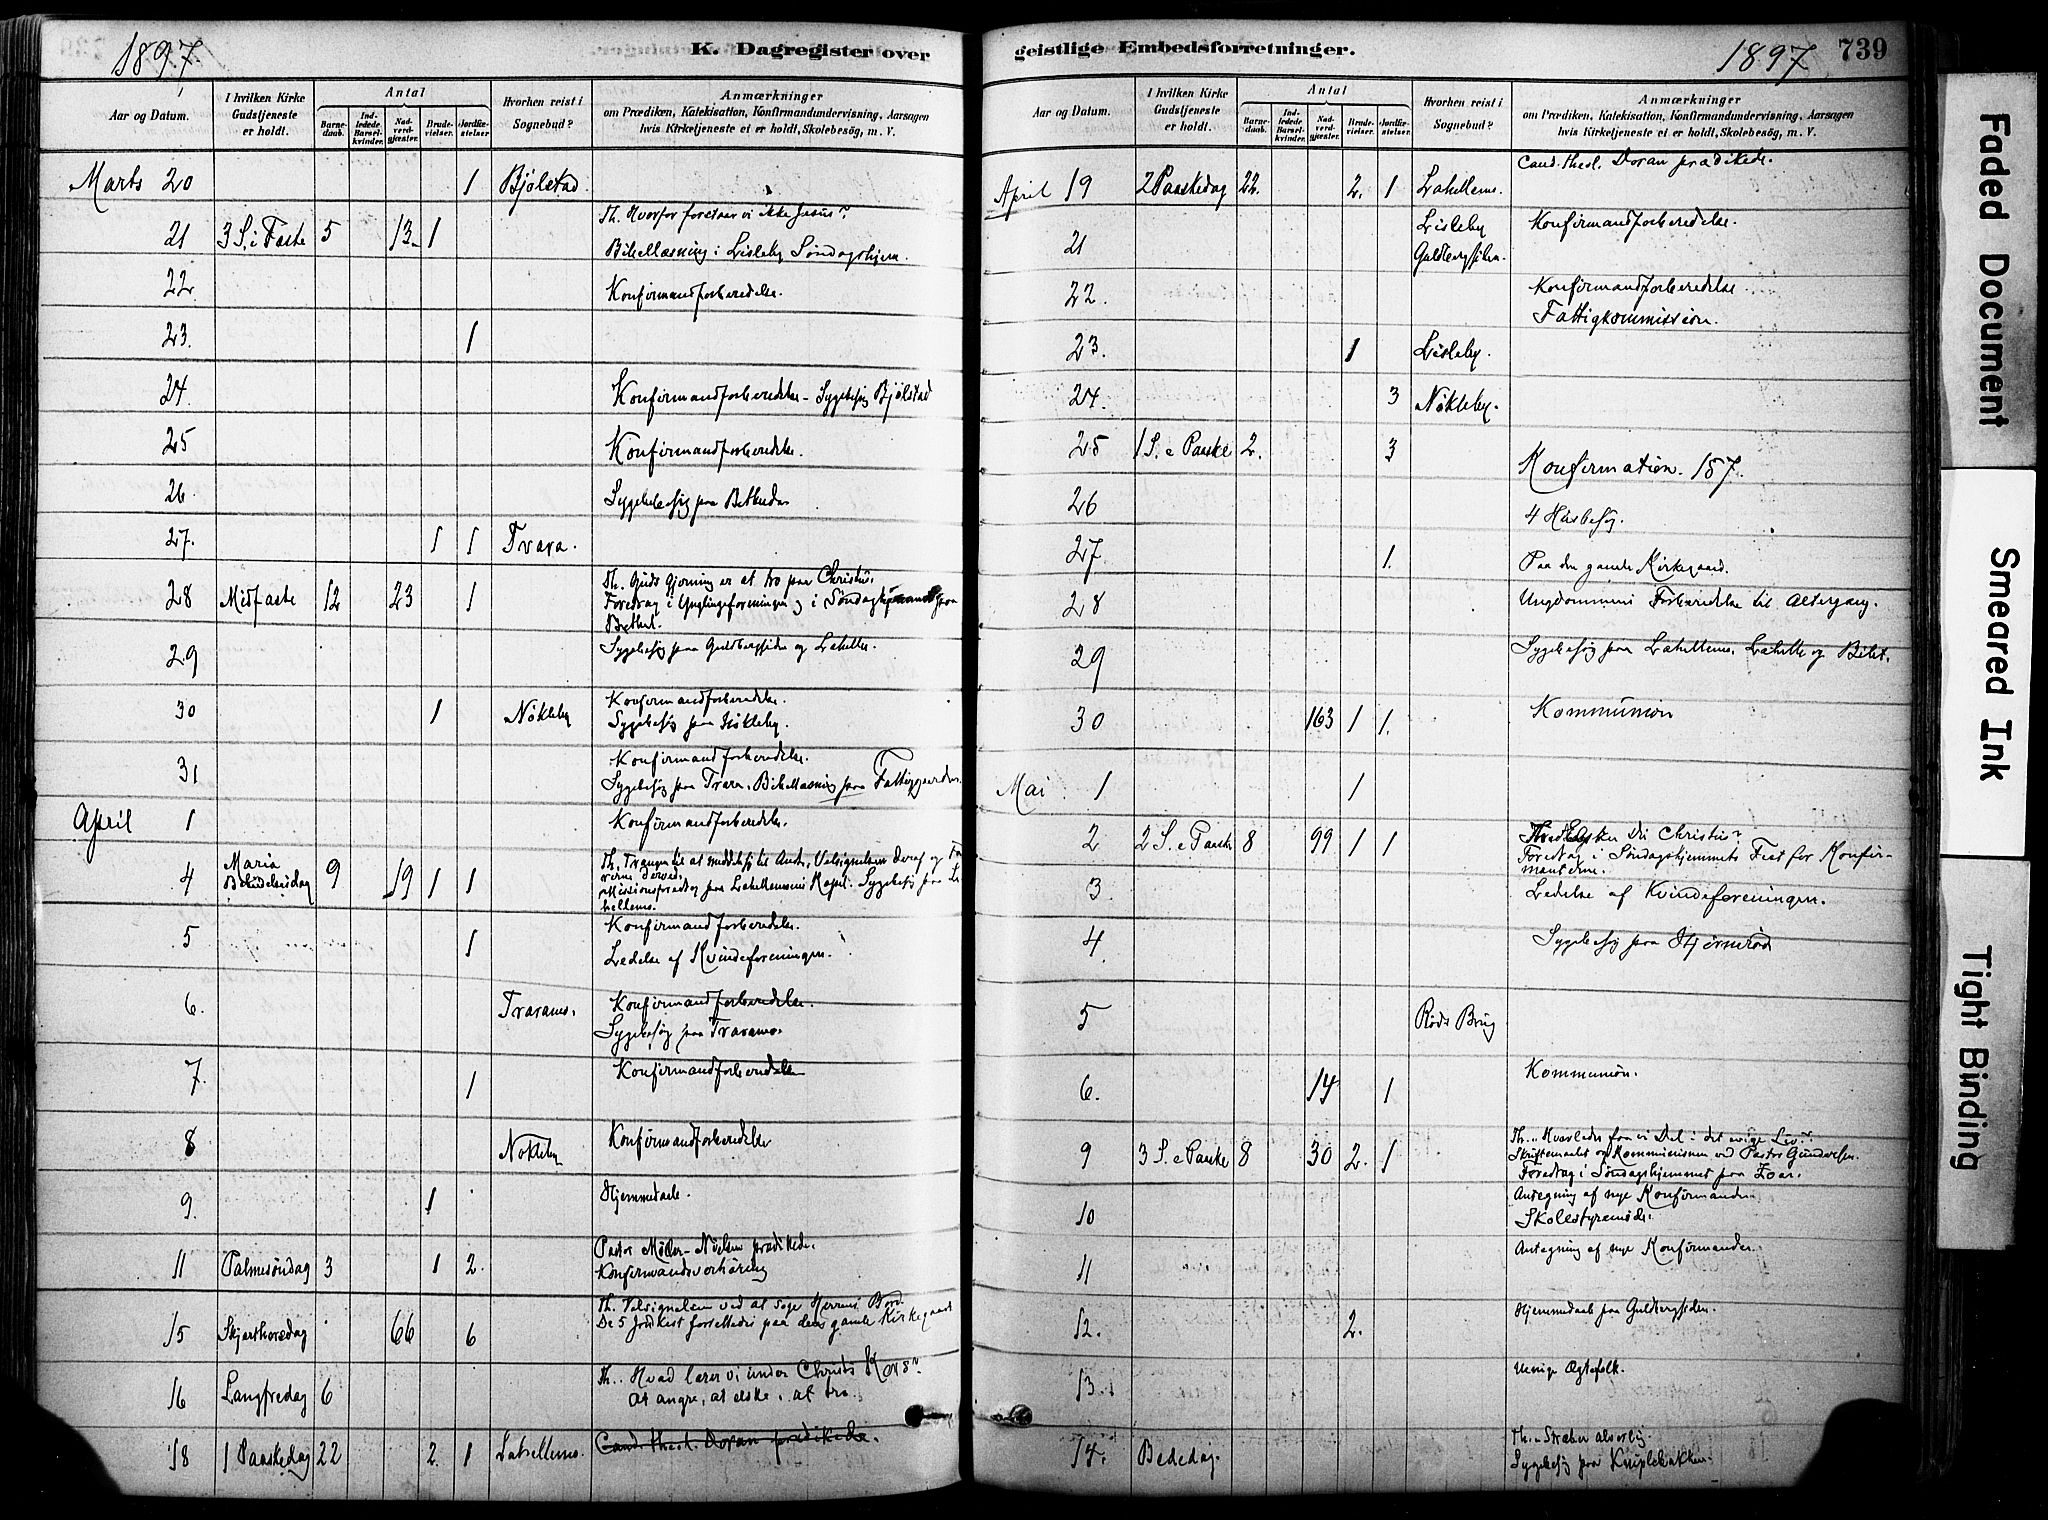 1897.
K. Dagregister over
Aar og Datum.
I hvilken Kirke Gudstjeneste er holdt.
Antal
Barne-daab.
Ind-ledede Barsel-kvinder.
Nad-verd-gjæster.
Brude-vielser.
Jordfæ-stelser
Hvorhen reist i Sognebud?
Anmærkninger
om Prædiken, Katekisation, Konfirmandundervisning, Aarsagen
hvis Kirketjeneste et er holdt, Skolebesög, m. V.
Marts 20 1 Bjølstad
Th. Hvorfor foretaer vi ikke Jesus?
21 3 S. i Faste 5 13 1
Bibellæsning i Lisleby Søndagshjem.
22. Konfirmandforberedelse.
23. 1
24. Konfirmandforberedelse - Sygebesøg Bjølstad
25 Konfirmandforberedelse.
26. Sygebesøg paa
27. 1 1 Trara.
Th. Guds Gjerning er at tro paa Christus.
28 Midfaste 12 23 1
Foredrag i Ynglingeforeningen og i
Bethel.
29 Sygebesøg paa Guldbergsiden og Lahelle.
30 1 Nøkleby Konfirmandforberedelse.
Sygebesøg paa Nøkleby.
31 Konfirmandforberedelse.
Sygebesøg paa Trara. Bibellæsning paa Fattiggaarden.
April 1 Konfirmandforberedelse.
4 Maria Bebudelsesdag 9 19 1 1
Th. Trangen til at meddele sig til Andre, Velsignelsen deraf og
Missionsforedrag paa Lahellemoens Kapel. Sygebesøg paa La-
hellemo.
5 1 Konfirmandforberedelse.
Ledelse af Kvindeforeningen.
6. Traramo. Konfirmandforberedelse.
Sygebesøg paa Traramo.
7. 1 Konfirmandforberedelse
8 Nøkleby Konfirmandforberedelse
9. 1 Hjemmedaab.
Pastor Møller-Nielsen prædikede.
11 Palmesøndag 3 1 2.
Konfirmandoverhøring
Th. Velsignelsen ved at søge Herrens Bord.
15 Skjærthorsdag 66 6
De 5 Jordfæst forrettedes paa den gamle Kirkegaard
16 Langfredag 6 Th. Hvad lærer vi under Christi Kors?
At angre, at elske, at tro.
18 1 Paaskedag 22 2. 1 Lahellemo. Cand. theol. Doran prædikede.
geistlige Embedsforretninger.
1897
739
Aar og Datum.
I hvilken Kirke Gudstjeneste er holdt.
Antal
Barne-daab.
Ind-ledede Barsel-kvinder.
Nad-verd-gjæster.
Brude-vielser.
Jordfæ-stelser
Hvorhen reist i Sognebud?
Anmærkninger
om Prædiken, Katekisation, Konfirmandundervisning, Aarsagen
hvis Kirketjeneste et er holdt, Skolebesög, m. V.
Cand. theol. Doran prædikede.
April 19 2 Paaskedag 22. 2. 1 Lahellemo.
21 Lisleby Konfirmandforberedelse.
Guldbergsiden.
22. Konfirmandforberedelse
Fattigkommission.
23. 1 Lisleby.
24. 3 Nøkleby.
25 1 S. e Paaske 2. 3 Konfirmation. 157.
26 4 Husbesøg.
27. 1. Paa den gamle Kirkegaard.
28 Ungdommens Forberedelse til Altergang.
29 Sygebesøg paa Lahellemo, Lahelle og
30 163 1 1. Kommunion
Mai 1 1
2 2 S. e Paaske 8 99 1 1 Du Christus?
Foredrag i Søndagshjemmets Fest for Konfir-
manterne.
3. Ledelse af Kvindeforeningen.
4. Sygebesøg paa
5 Røds Brug
6. 14 1 Kommunion.
Th. Hvorledes faa vi Del i det evige Liv?
9 3 S. e Paaske 8 30 2. 1
Skriftemaalet og Kommunionen ved Pastor Gundersen.
Foredrag i Søndagshjemmet paa Zoar.
10 Antegning af nye Konfirmander
Skolestyremøde.
11 Antegning af nye Konfirmander.
12. 2. Hjemmedaab paa Guldbergsiden.
13. Uenige Ægtefolk.
14. Bededag. Th. Stræber alvorlig.
Sygebesøg paa Kniplebakken.
Faded Document
Smeared Ink
Tight Binding